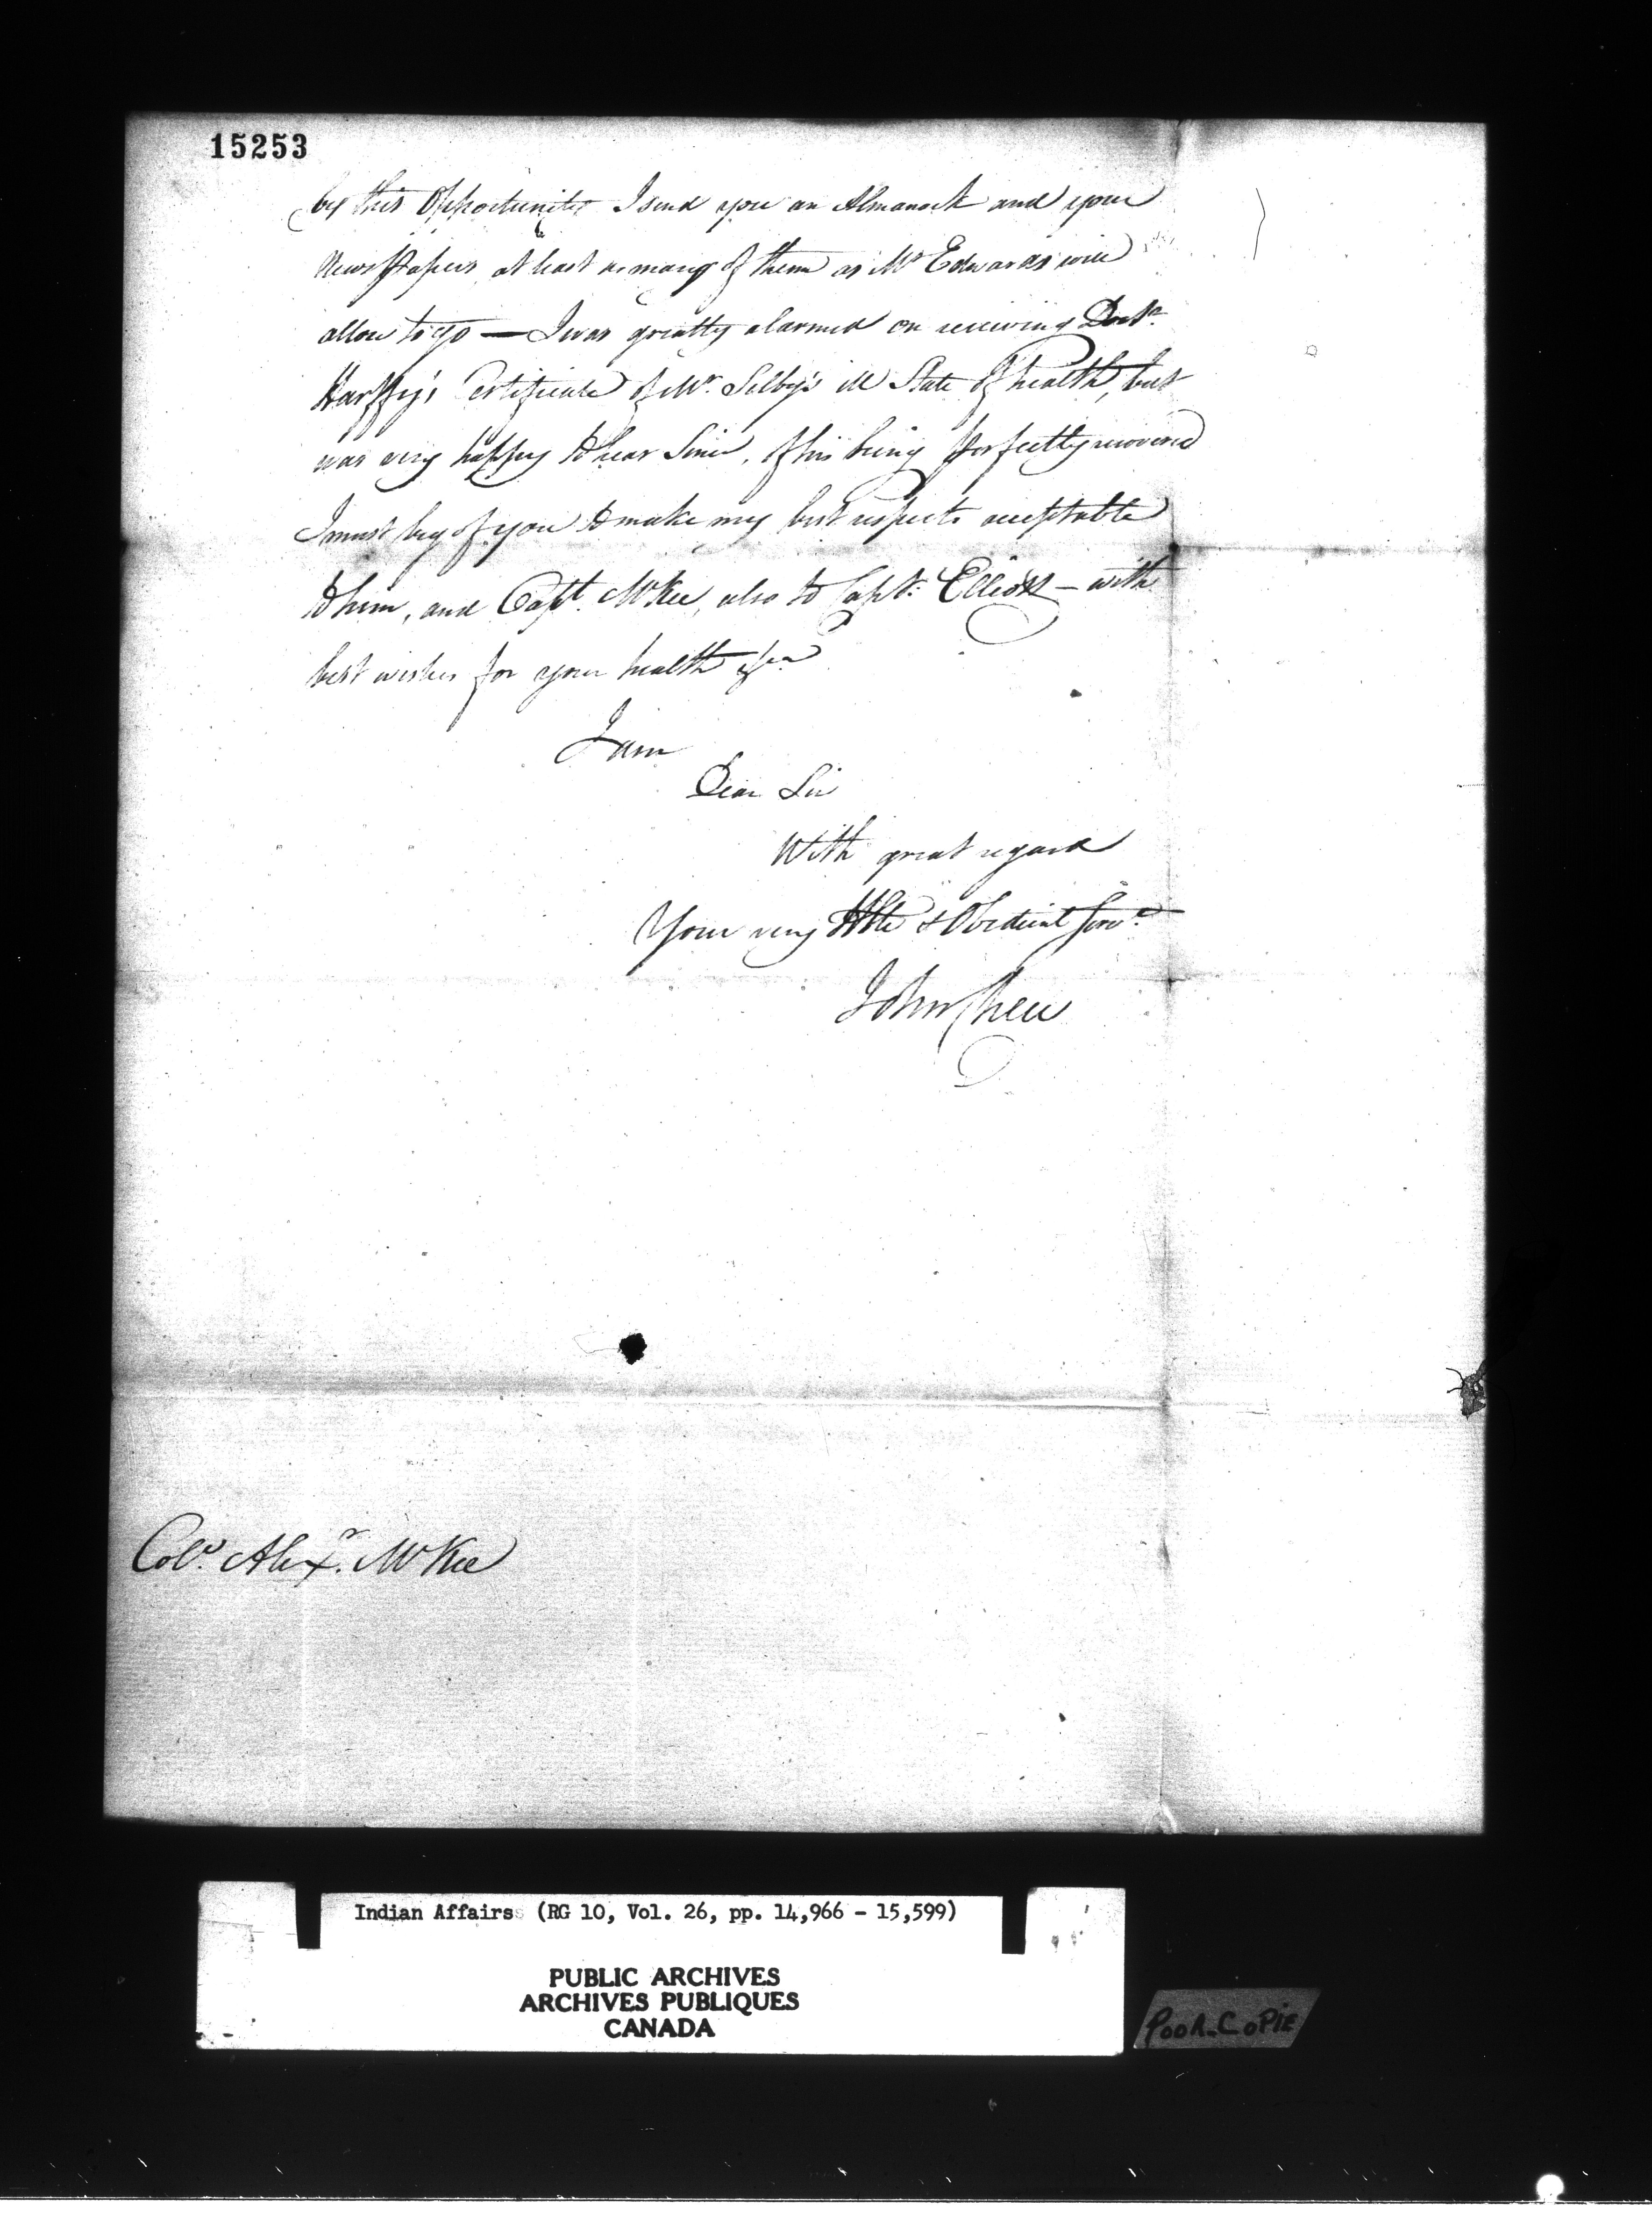 15253
by this Opportunity I send you an Almanack and your
Newspapers, at least as many of them as Mr Edwards will
allow to go — I was greatly alarmed on receiving Doctr.
Harffy's Certificate of Mr. Selby's ill State of health, but
was very happy to hear Since, of his being perfectly recovered
I must beg of you to make my best respects acceptable
to him, and Capt. McKee, also to Capt. Elliott — with
best wishes for your health &ca
I am
Dear Sir
With great regard
Your very Hble & Obedient Servt.
John Chew
Colo. Alexr. McKee
Indian Affairs (RG 10, Vol. 26, pp. 14,966 - 15,599)
PUBLIC ARCHIVES
ARCHIVES PUBLIQUES
CANADA
POOR-COPIE